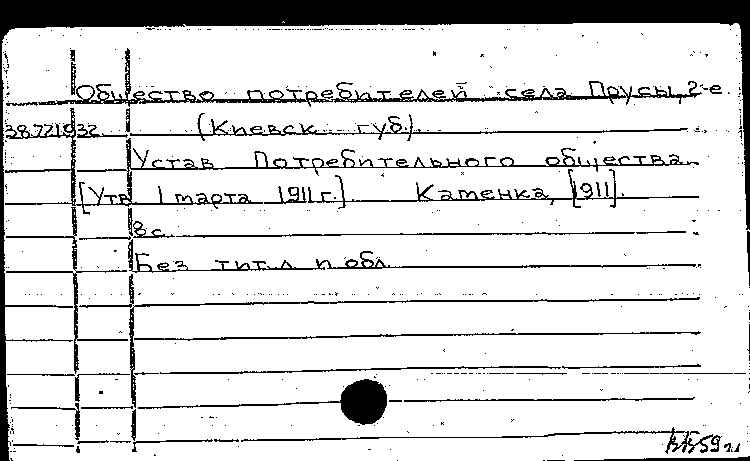 Общество потребителей села Прусы, 2-е
(Киевск губ.).
Устав Потребительного общества.
[Утв 1 марта 1911г.] Каменка, [1911].
8с.
Без тит.л и обл.